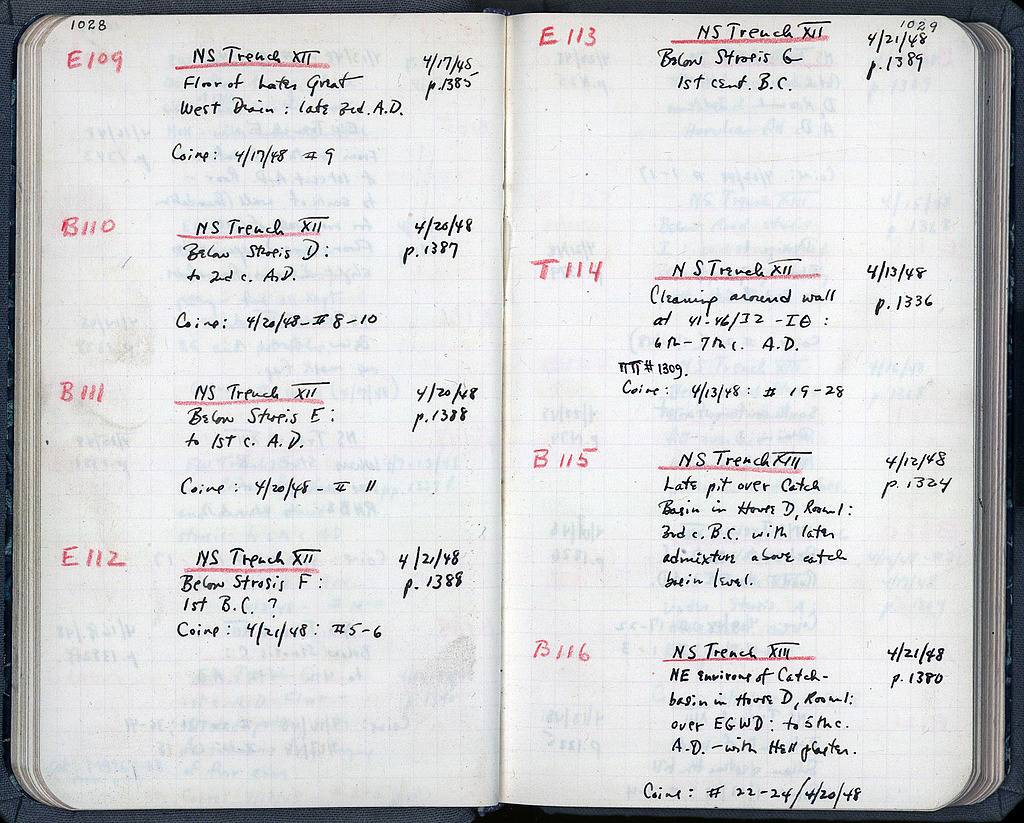 1028
E109 NS Trench XII 4/17/48
Floor of Later Great p.1385
West Drain : late 3rd. A.D.
Coins: 4/17/48 #9
B110 NS Trench XII 4/20/48
Below Strosis D : p.1387
to 2nd c. A.D.
Coins: 4/20/48 - #8-10
B111 NS Trench XII 4/20/48
Below Strosis E : p.1388
to 1st c. A.D.
Coins: 4/20/48 - # 11
E112 NS Trench XII 4/21/48
Below Strosis F : p.1388
1st B.C. ?
Coins: 4/21/48 : #5-6
1029
E113 NS Trench XII 4/21/48
Below Strosis G p.1389
1st cent. B.C.
T114 NS Trench XII 4/13/48
Cleaning around wall p.1336
at 41-46/ΙΖ -ΙΘ :
6th - 7th c. A.D.
ΠΠ # 1309.
Coins: 4/13/48 : # 19-28
B115 NS Trench XIII 4/12/48
Late pit over Catch p.1324
Basin in House D, Room 1:
3rd c. B.C. with later
admixture above catch
basin level.
B116 NS Trench XIII 4/21/48
NE environs of Catch- p.1380
basin in House D, Room 1:
over EGWD : to 5th c.
A.D. - with Hell plaster.
Coins: # 22-24/4/20/48